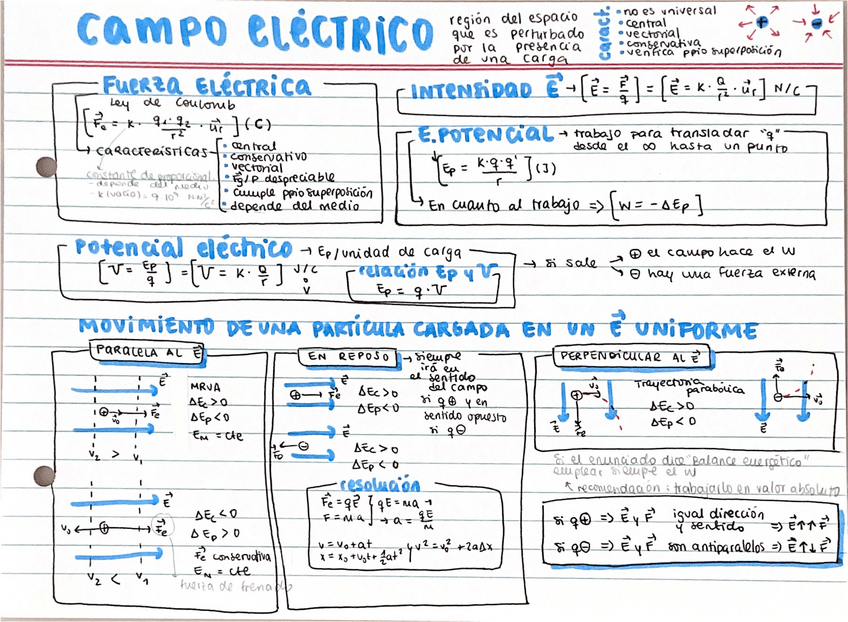 CAMPO ELÉCTRICO
región del espacio
que es perturbado
por la presencia
de una carga
caract.
• no es universal
• central
• vectorial
• conservativa
• verifica ppio superposición
+
-
FUERZA ELÉCTRICA
Ley de Coulomb
[F⃗e = K · q1·q2/r² · u⃗r] (C)
CARACTERÍSTICAS
• central
• conservativo
• vectorial
• Fg/P despreciable
• cumple ppio superposición
• depende del medio
constante de proporcional.
- depende del medio
INTENSIDAD E⃗ → [E⃗ = F⃗/q] = [E⃗ = K · Q/r² · u⃗r] N/C
E. POTENCIAL → trabajo para transladar "q"
desde el ∞ hasta un punto
[Ep = K·q·q'/r] (J)
En cuanto al trabajo => [W = -ΔEp]
→ si sale
⊕ el campo hace el W
⊖ hay una fuerza externa
Potencial eléctrico → Ep/unidad de carga
[V = Ep/q] = [V = K · Q/r] J/C
o
V
relación Ep y V
Ep = q · V
MOVIMIENTO DE UNA PARTÍCULA CARGADA EN UN E⃗ UNIFORME
PARALELA AL E⃗
E⃗
⊕ v⃗0 F⃗e
V2 > V1
MRVA
ΔEc>0
ΔEp<0
EM = cte
E⃗
v0 ⊕ F⃗e
V2 < V1
ΔEc<0
ΔEp>0
F⃗e conservativa
EM = cte
fuerza de frenado
EN REPOSO → siempre
irá en
el sentido
del campo
si q⊕ y en
sentido opuesto
si q⊖
E⃗
⊕ F⃗e
ΔEc>0
ΔEp<0
F⃗e ⊖
E⃗
ΔEc>0
ΔEp<0
resolución
F⃗e = qE⃗
F = m·a
qE = ma →
→ a = qE/m
v = v0 + at
x = x0 + v0t + ½at²
v² = v0² + 2aΔx
PERPENDICULAR AL E⃗
⊕ v⃗0
E⃗ F⃗e
Trayectoria
parabólica
ΔEc>0
ΔEp<0
F⃗e
⊖ v⃗0
E⃗
Si el enunciado dice "balance energético"
emplear siempre el W
recomendación: trabajarlo en valor absoluto
si q⊕ => E⃗ y F⃗ igual dirección y sentido => E⃗↑↑F⃗
si q⊖ => E⃗ y F⃗ son antiparalelos => E⃗↑↓F⃗